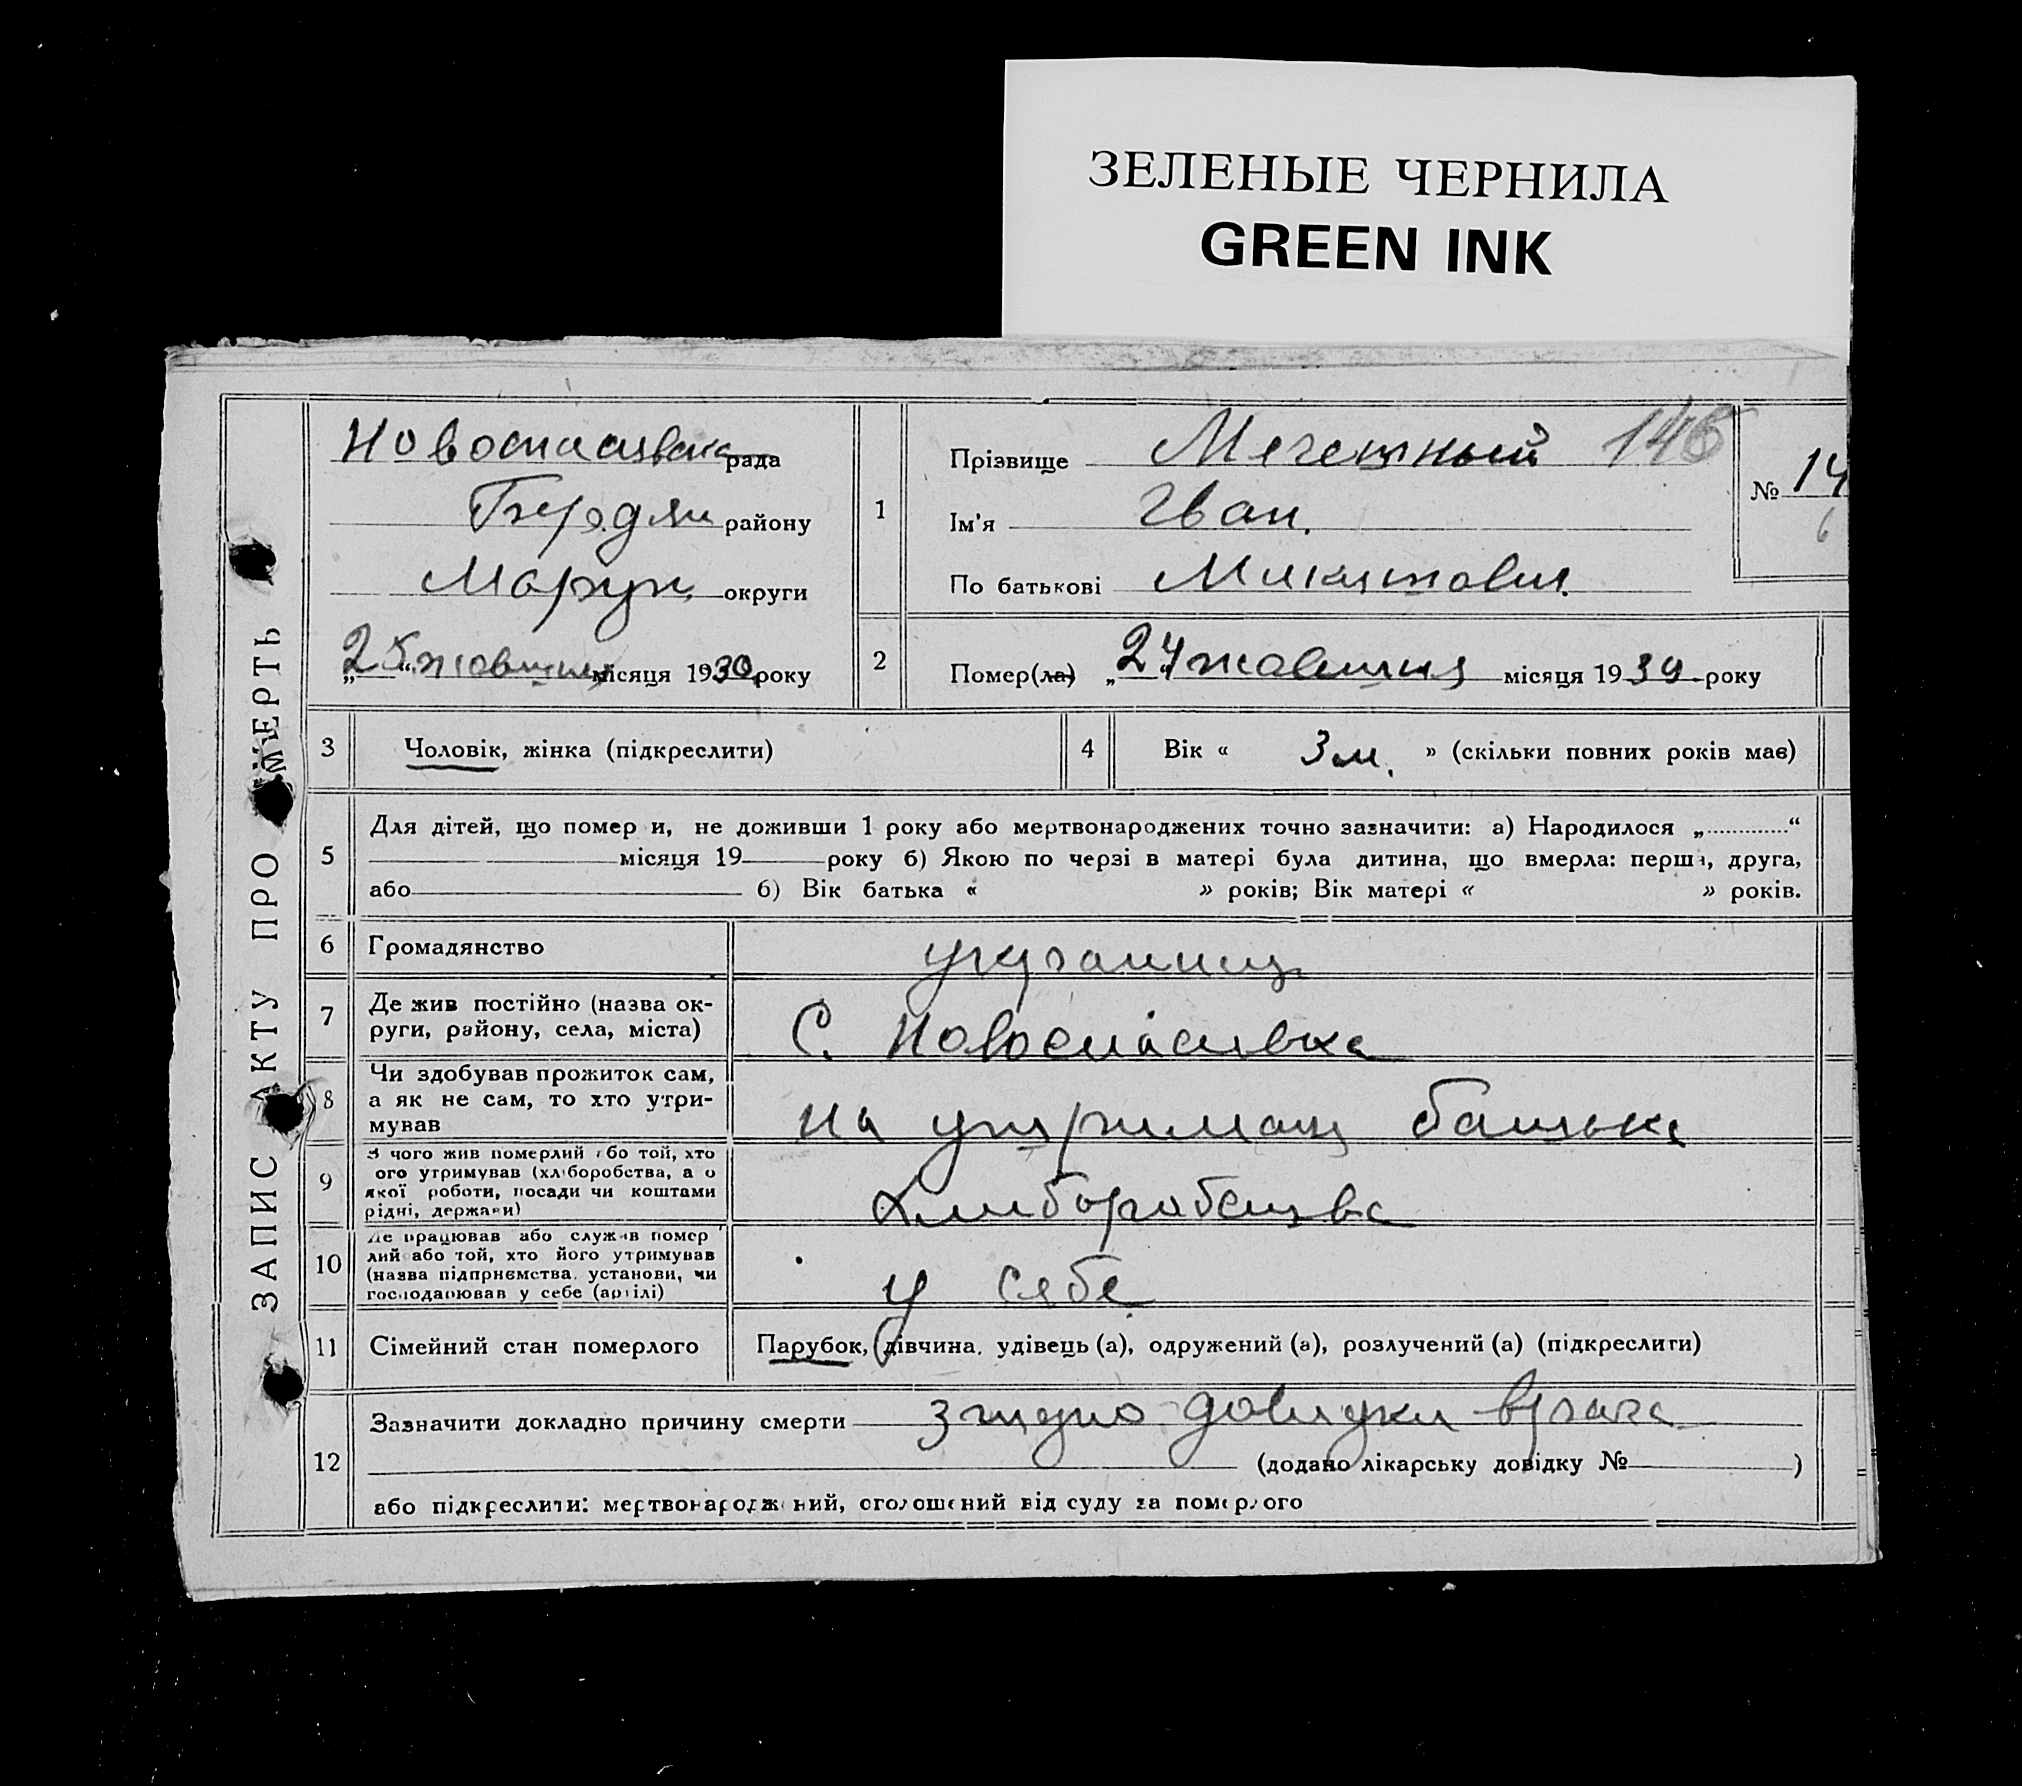 ЗЕЛЕНЫЕ ЧЕРНИЛА
GREEN INK
ЗАПИС АКТУ ПРО СМЕРТЬ
Новоспасівська рада
Бердян району
Маріуп. округи
„25“ жовтня місяця 1930 року
1
Прізвище Мечетный 146
Ім'я Іван.
По батькові Микитович.
№ 14
6
2
Помер(ла) „24“ жовтня місяця 1930 року
3 Чоловік, жінка (підкреслити)
4 Вік « 3 м. » (скільки повних років має)
5
Для дітей, що помер и, не доживши 1 року або мертвонароджених точно зазначити: а) Народилося „ “
місяця 19 року б) Якою по черзі в матері була дитина, що вмерла: перша, друга,
або б) Вік батька « » років; Вік матері « » років.
6 Громадянство украинец
7 Де жив постійно (назва ок-
руги, району, села, міста)
С. Новоспасивка
8 Чи здобував прожиток сам,
а як не сам, то хто утри-
мував
на утриман батька
9 З чого жив померлий або той, хто
ого утримував (хліборобства, а о
якої роботи, посади чи коштами
рідні, держави)
Хлиборобства
10 Де працював або служив помер
лий або той, хто його утримував
(назва підприємства, установи, чи
господарював у себе (артілі)
у себе
11 Сімейний стан померлого Парубок, дівчина, удівець (а), одружений (а), розлучений (а) (підкреслити)
12 Зазначити докладно причину смерти згидно довидки врача
(додано лікарську довідку № )
або підкреслити: мертвонароджений, оголошений від суду за померлого